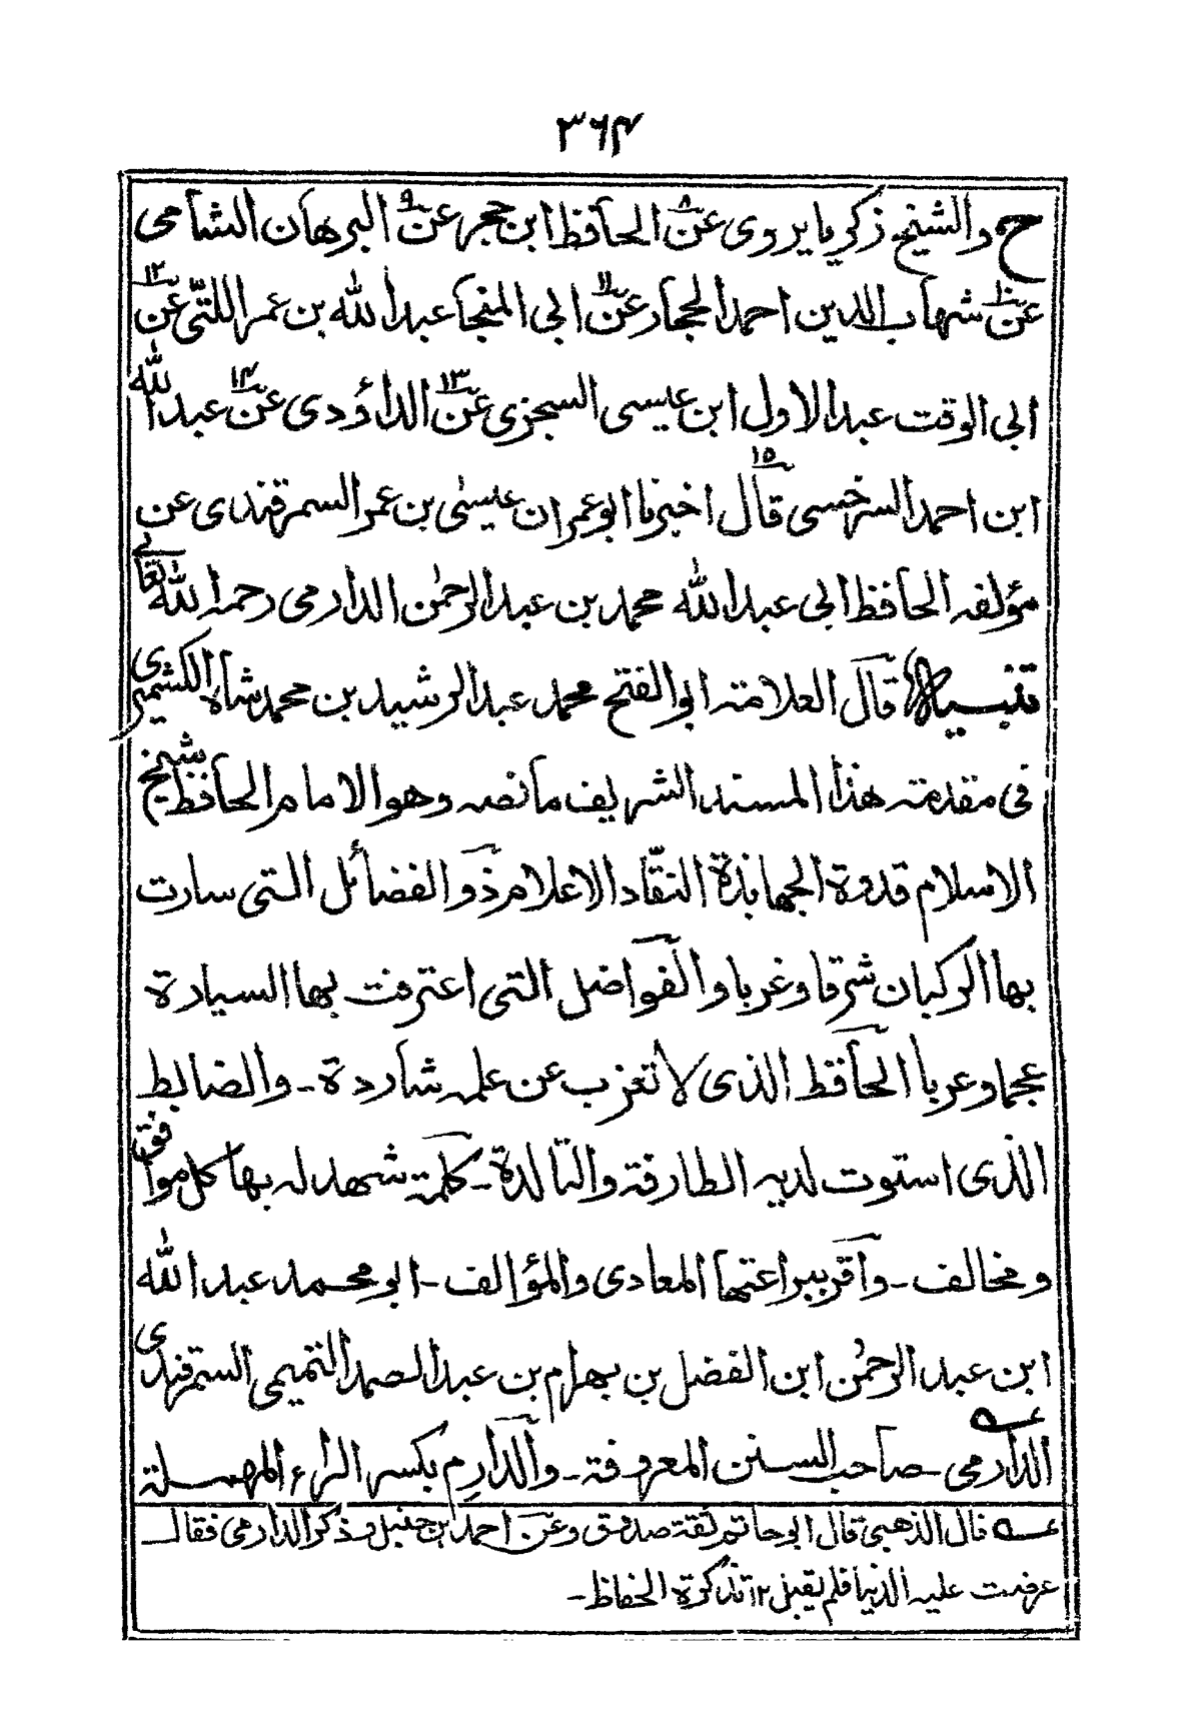 ٣٦٤
ح والشيخ زكريا يروى عن٨ الحافظ ابن حجر عن٩ البرهان الشامى
عن١٠ شهاب الدين احمد الحجار عن١١ ابى المنجا عبد الله بن عمر اللتّى عن١٢
ابى الوقت عبد الاول ابن عيسى السجزى عن١٣ الداؤدى عن١٤ عبد الله
ابن احمد السرخسى قال١٥ اخبرنا ابو عمران عيسٰى بن عمر السمرقندى عن
مؤلفه الحافظ ابى عبد الله محمد بن عبد الرحمٰن الدارمى رحمه الله تعالى
تنبيه قال العلامة ابو الفتح محمد عبد الرشيد بن محمد شاه الكشميرى
فى مقدمة هذا المسند الشريف ما نصه وهو الامام الحافظ شيخ
الاسلام قدوة الجهابذة النقّاد الاعلام ذو الفضائل التى سارت
بها الركبان شرقا وغربا والفواضل التى اعترفت بها السيادة
عجما وعربا الحافظ الذى لا تعزب عن علمه شاردة - والضابط
الذى استوت لديه الطارفة والتالدة - كلمة شهد له بها كل موافق
ومخالف - واقر ببراعتها المعادى والمؤالف - ابو محمد عبد الله
ابن عبد الرحمٰن ابن الفضل بن بهرام بن عبد الصمد التميمى السمرقندى
الدارمى عـــه - صاحب السنن المعروفة - والدارِم بكسر الراء المهملة
عـــه قال الذهبى قال ابو حاتم ثقة صدوق وعن احمد بن حنبل وذكر الدارمى فقال
عرضت عليه الدنيا فلم يقبل ١٢ تذكرة الحفاظ -